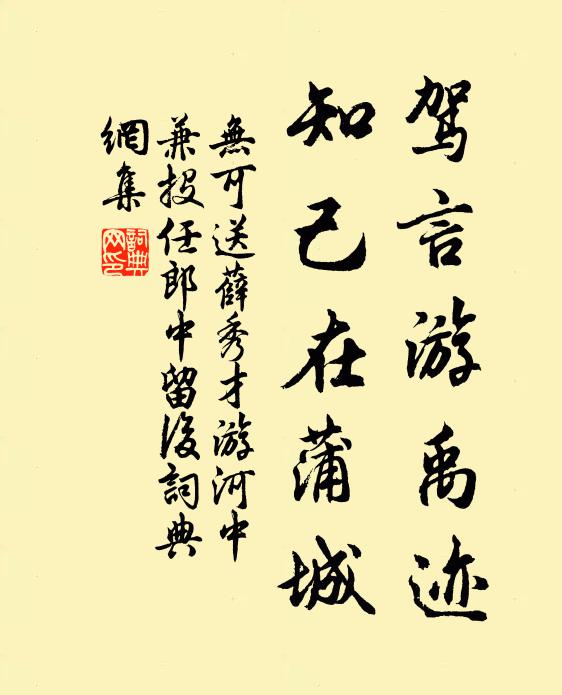 驾言游禹迹
知己在蒲城
無可送薛秀才游河中
兼投任郎中留後詞典
網集
詞典網印